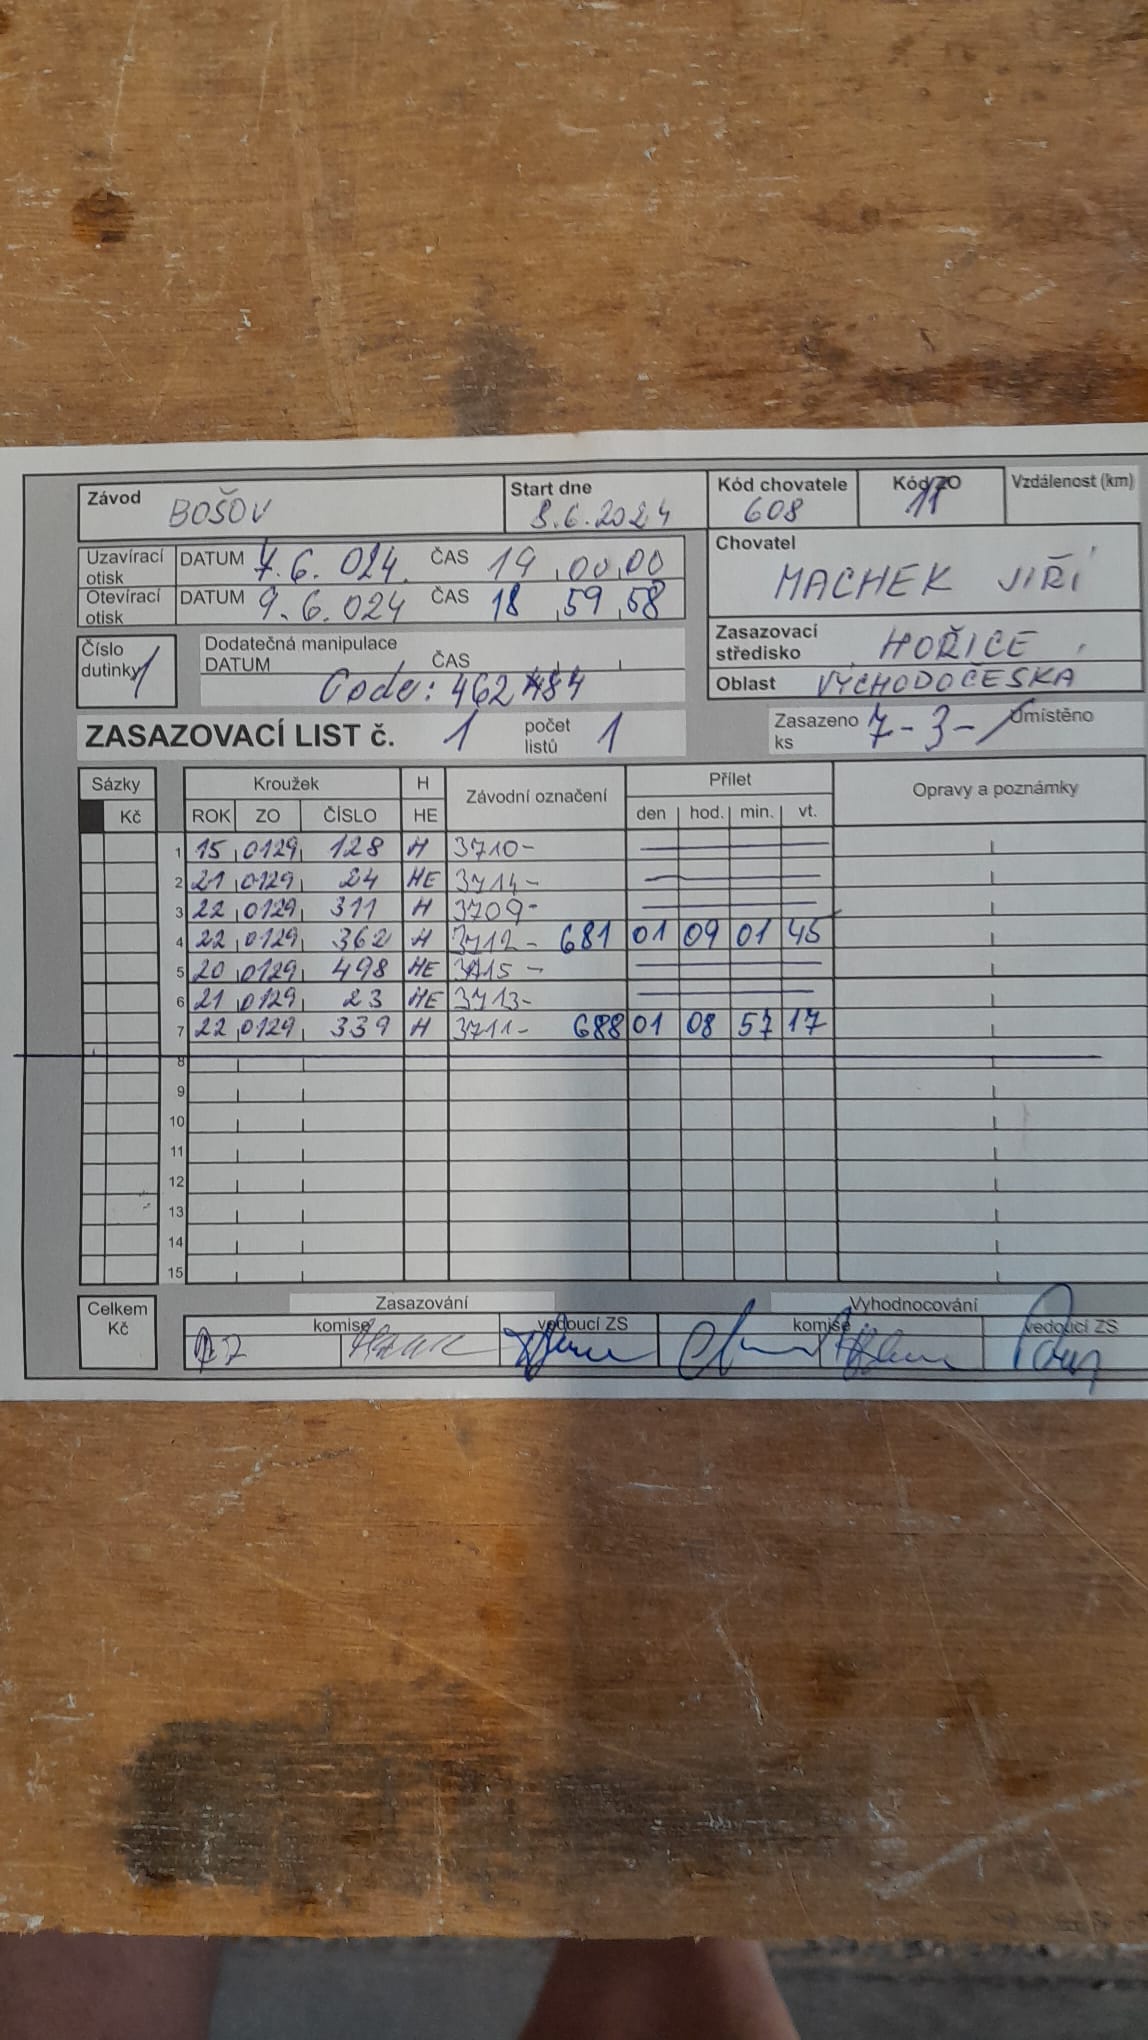 Závod BOŠOV Start dne 8.6.2024 Kód chovatele 608 Kód ZO 11 Vzdálenost (km)
Uzavírací otisk DATUM 7.6.024. ČAS 19,00,00
Otevírací otisk DATUM 9.6.024 ČAS 18,59,58
Chovatel
MACHEK JIŘÍ
Číslo dutinky 1
Dodatečná manipulace
DATUM ČAS
Code: 462484
Zasazovací středisko HOŘICE
Oblast VÝCHODOČESKÁ
ZASAZOVACÍ LIST č. 1 počet listů 1
Zasazeno ks 7-3- Umístěno
Sázky Kroužek H Závodní označení Přílet Opravy a poznámky
Kč ROK ZO ČÍSLO HE den hod. min. vt.
1 15 0129 128 H 3710-
2 21 0129 24 HE 3714-
3 22 0129 311 H 3709-
4 22 0129 362 H 3712- 681 01 09 01 45
5 20 0129 498 HE 3715-
6 21 0129 23 HE 3713-
7 22 0129 339 H 3711- 688 01 08 57 17
8
9
10
11
12
13
14
15
Celkem Kč
Zasazování Vyhodnocování
komise vedoucí ZS komise vedoucí ZS